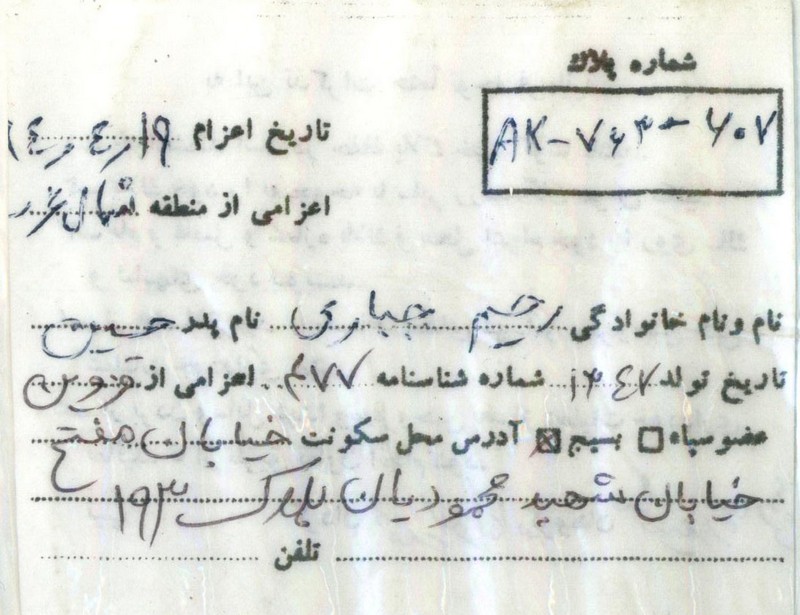 شماره پلاک
AK-۷۶۳-۶۰۷
تاریخ اعزام ۱۹ر۴ر۶۴
اعزامی از منطقه شمال غرب
نام و نام خانوادگی رحیم جباری نام پدر حسین
تاریخ تولد ۱۳۴۷ شماره شناسنامه ۴۷۷ اعزامی از قزوین
عضو سپاه □ بسیج ☒ آدرس محل سکونت خیابان مفتح
خیابان شهید محمودیان پلاک ۱۹۳
تلفن